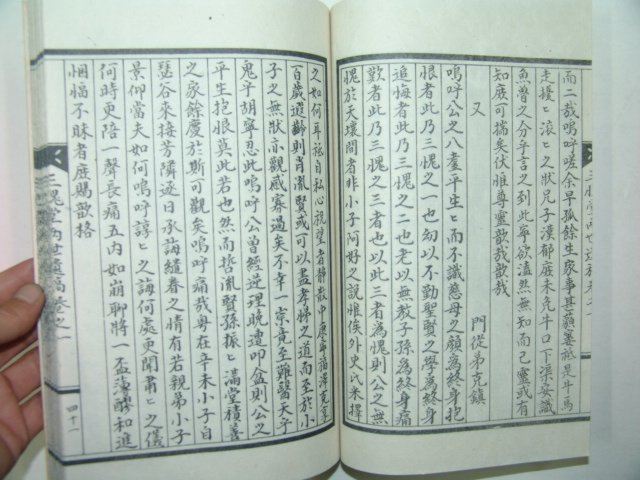 而二哉嗚呼嗟余早孤餘生家事甚蘋蔞祗是斗馬
走擾〻滾〻之狀凡子漢郁庶未免牛口下渠安識
魚魯之分乎言之到此寧欲溘然無知而已靈或有
知庶可揣矣伏惟尊靈歆哉歆哉
又
門從弟克鎮
嗚呼公之八耋平生〻而不識慈母之顔爲終身抱
恨者此乃三愧之一也幼以不勤聖賢之學爲終身
追悔者此乃三愧之二也老以無教子孫爲終身痛
歎者此乃三愧之三者也以此三者爲愧則公之無
愧於天壤間者非小子阿好之說惟俟外史氏米擇
之如何耳祗自私心祝望者靜散中康寧福澤克享
百歲遐齡則肖胤賢或可以盡孝婦之道而至於小
子之無狀亦觀感寡過矣不幸一祟竟至難醫天乎
鬼乎胡寧忍此嗚呼公曾經逆理晚遭叩盆則公之
平生抱恨莫此若也然而哲胤賢孫振〻滿堂積善
之家餘慶於斯可觀矣嗚呼痛哉粤在辛未小子自
瑟谷來接芳隣逐日承誨繾眷之情有若親弟小子
景仰當夫如何嗚呼諄〻之誨何處更聞肅〻之儀
何時更陪一聲長痛五內如崩聊將一盃薄醪和進
悃愊不昧者庶賜歆格
三愧堂內世遺稿卷之一
四十一